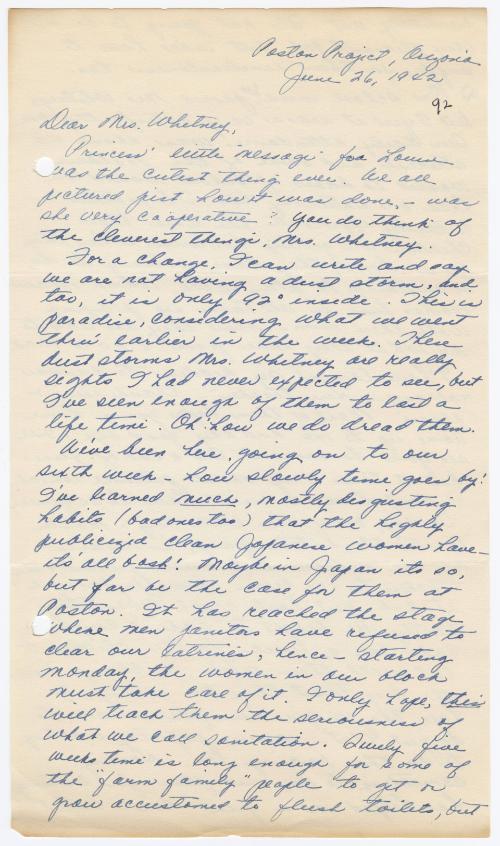 Poston Project, Arizona
June 26, 1942
92
Dear Mrs. Whitney,
Princess' little "message" for Louise
was the cutest thing ever. We all
pictured just how it was done, - was
she very cooperative? You do think of
the cleverest things, Mrs. Whitney.
For a change, I can write and say
we are not having a dust storm, and
too, it is only 92° inside. This is
paradise, considering what we went
thru earlier in the week. These
dust storms Mrs. Whitney are really
sights I had never expected to see, but
I've seen enough of them to last a
life time. Oh! how we do dread them.
We've been here, going on to our
sixth week - how slowly time goes by!
I've learned much, mostly disgusting
habits (bad ones too) that the highly
publicized clean Japanese women have -
it's all bosh! Maybe in Japan its so,
but far be the case for them at
Poston. It has reached the stage
where men janitors have refused to
clear our latrines, hence - starting
Monday, the women in our block
must take care of it. I only hope, this
will teach them the seriousness of
what we call sanitation. Surely five
weeks time is long enough for some of
the "farm family" people to get or
grow accustomed to flush toilets, but